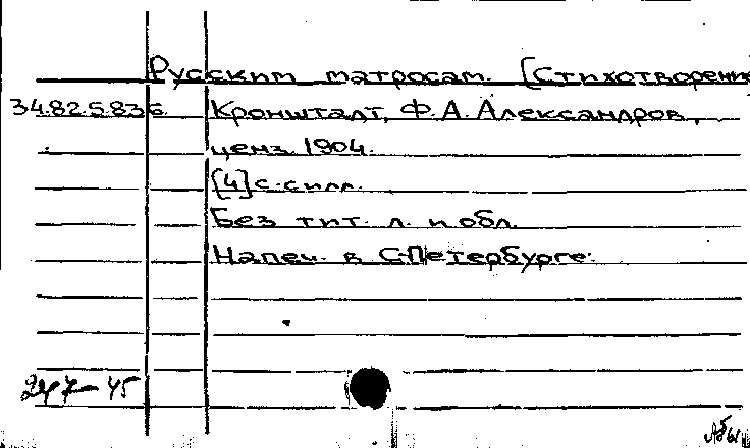 Русским матросам. [Стихотворение
34.82.5.836 Кронштадт, Ф.А.Александров,
ценз. 1904.
[4]с.силл.
Без тит. л. и обл.
Напеч. в С-Петербурге.